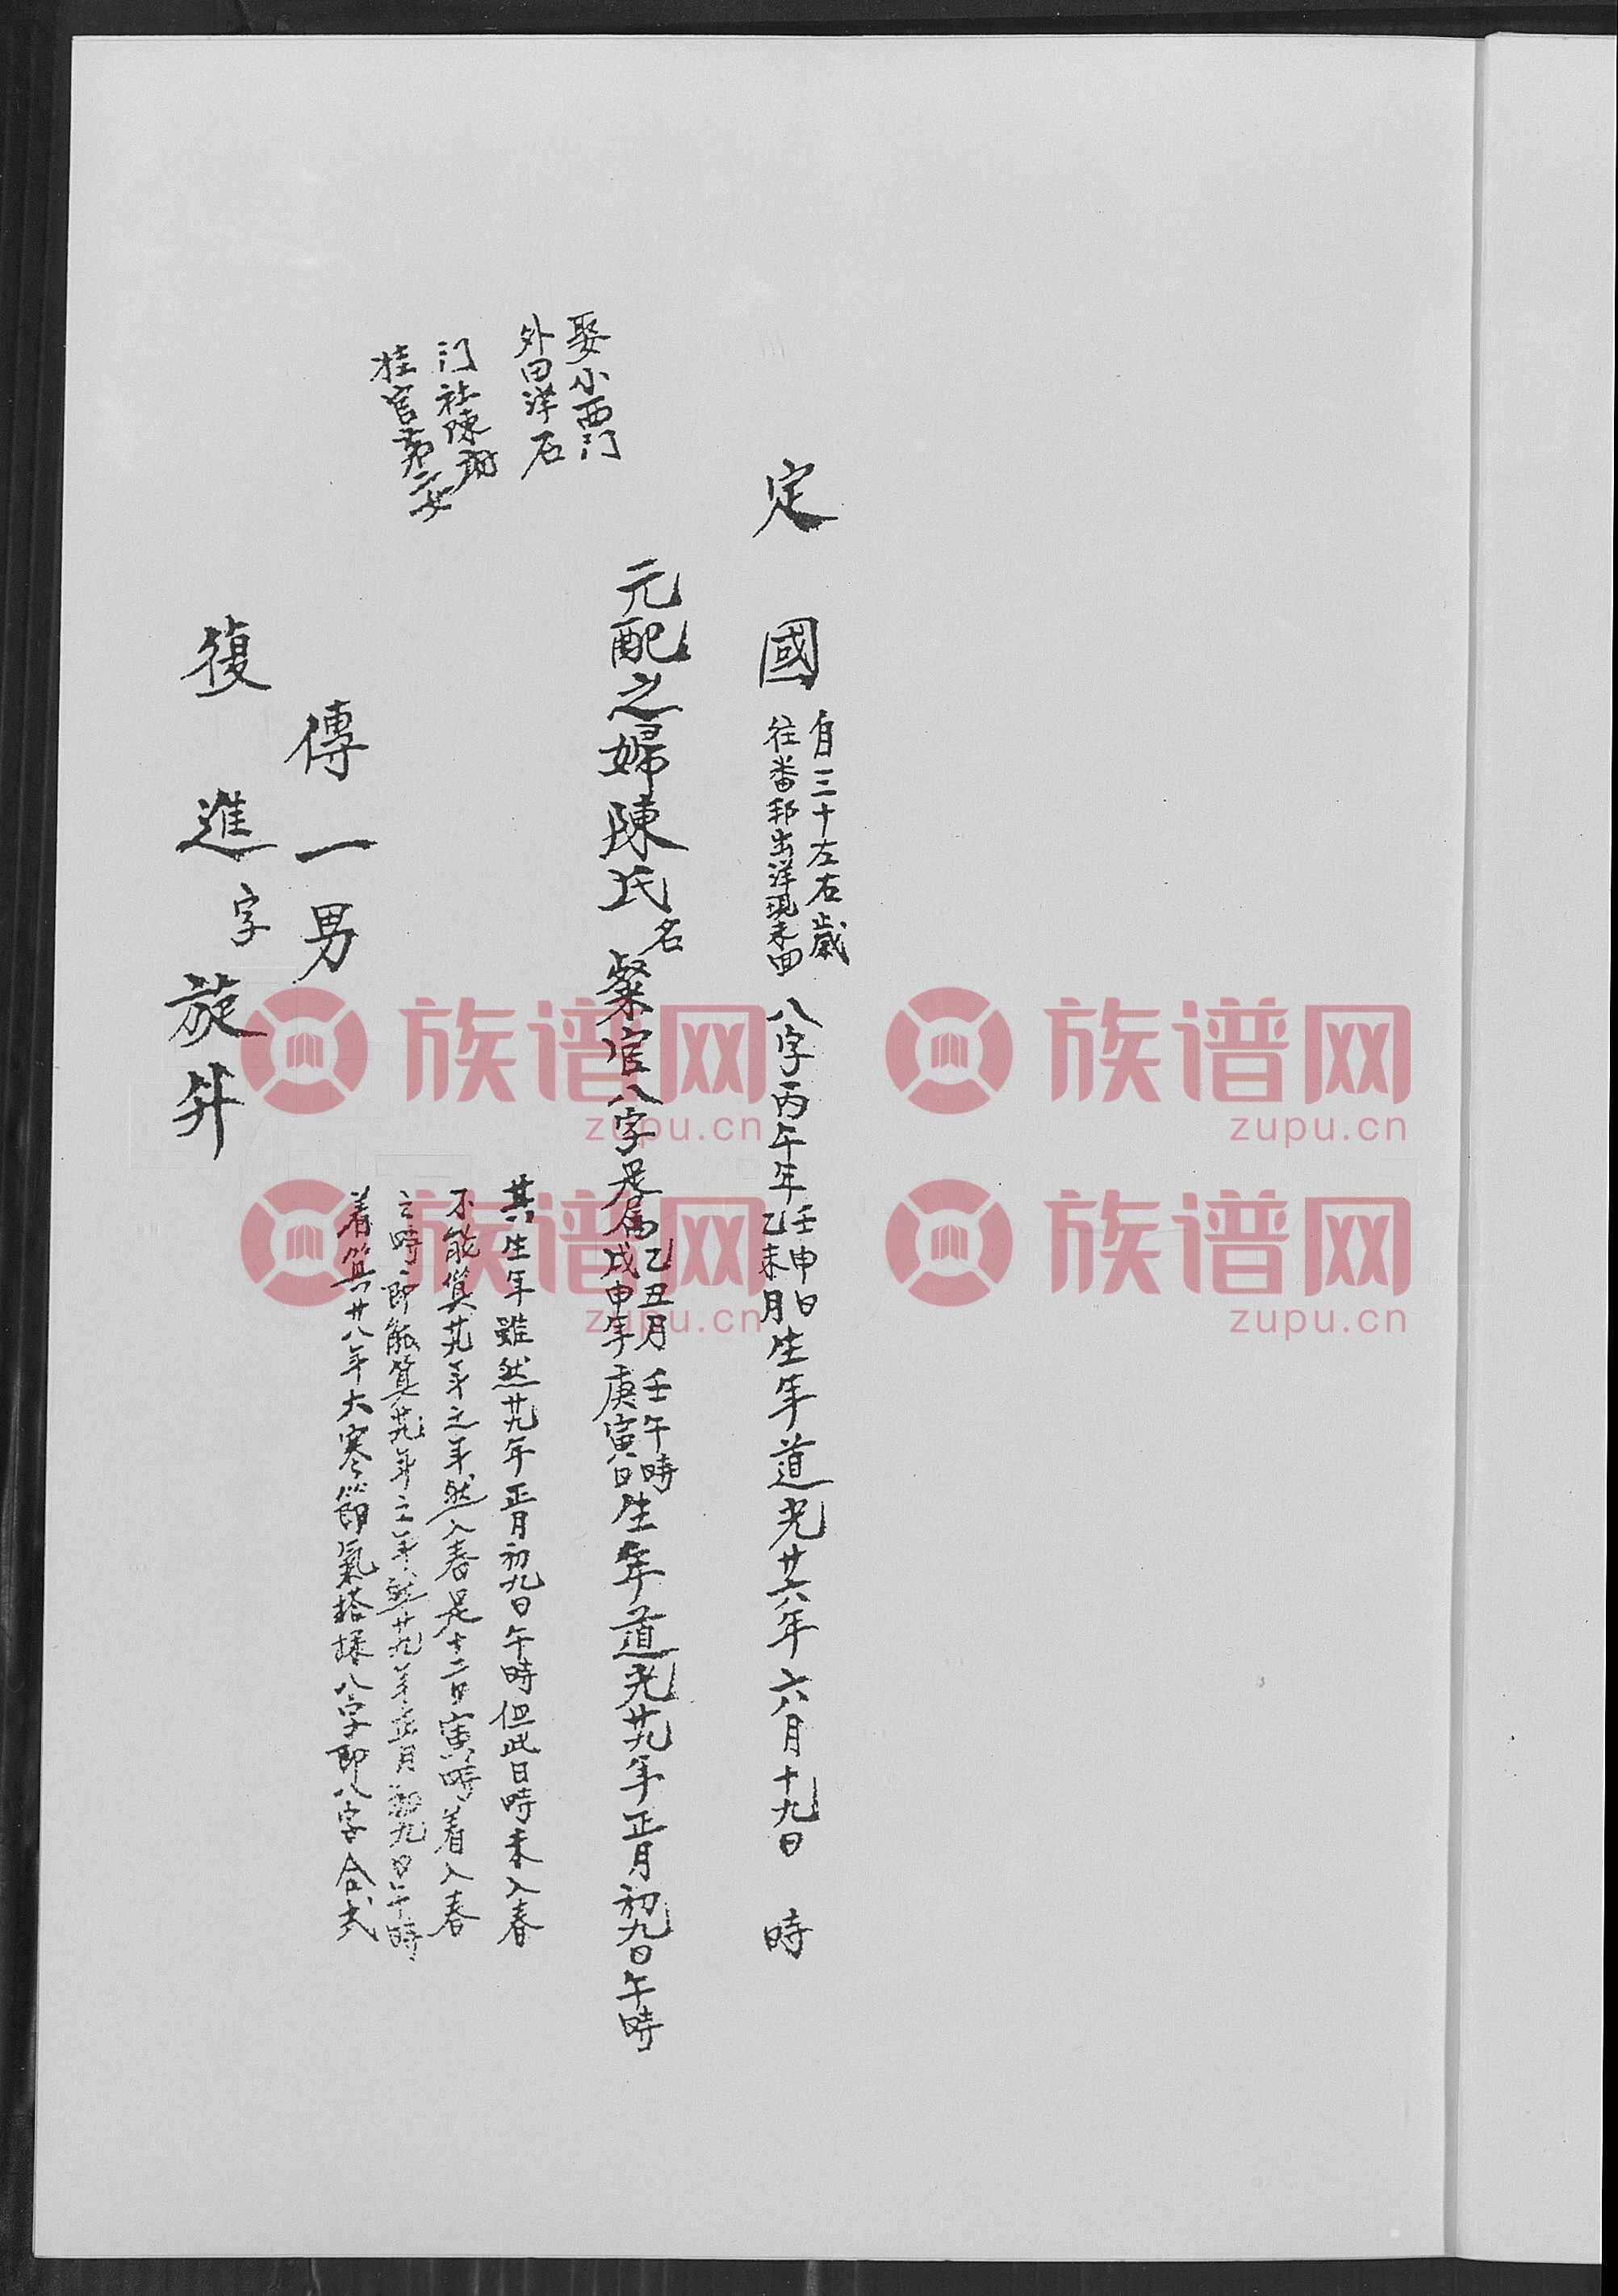 定國
自三十左右歲
往番邦出洋現未回
八字丙午年
壬申日
乙未月
生年道光廿六年六月十九日　時
元配之婦陳氏名粲官八字是屬
乙丑月　壬午時
戊申年　庚寅日
生年道光廿九年正月初九日午時
娶小西门
外田洋石
门社陳
桂官弟二女
其生年雖然廿九年正月初九日午時但此日時未入春
不能算廿九年之年然入春是十二日寅時着入春
之時即能算廿九年之年　廿九年正月初九日午時
着算廿八年大寒節氣搭採八字即八字合式
傳一男
復進字旋升
族谱网
zupu.cn
族谱网
zupu.cn
族谱网
zupu.cn
族谱网
zupu.cn